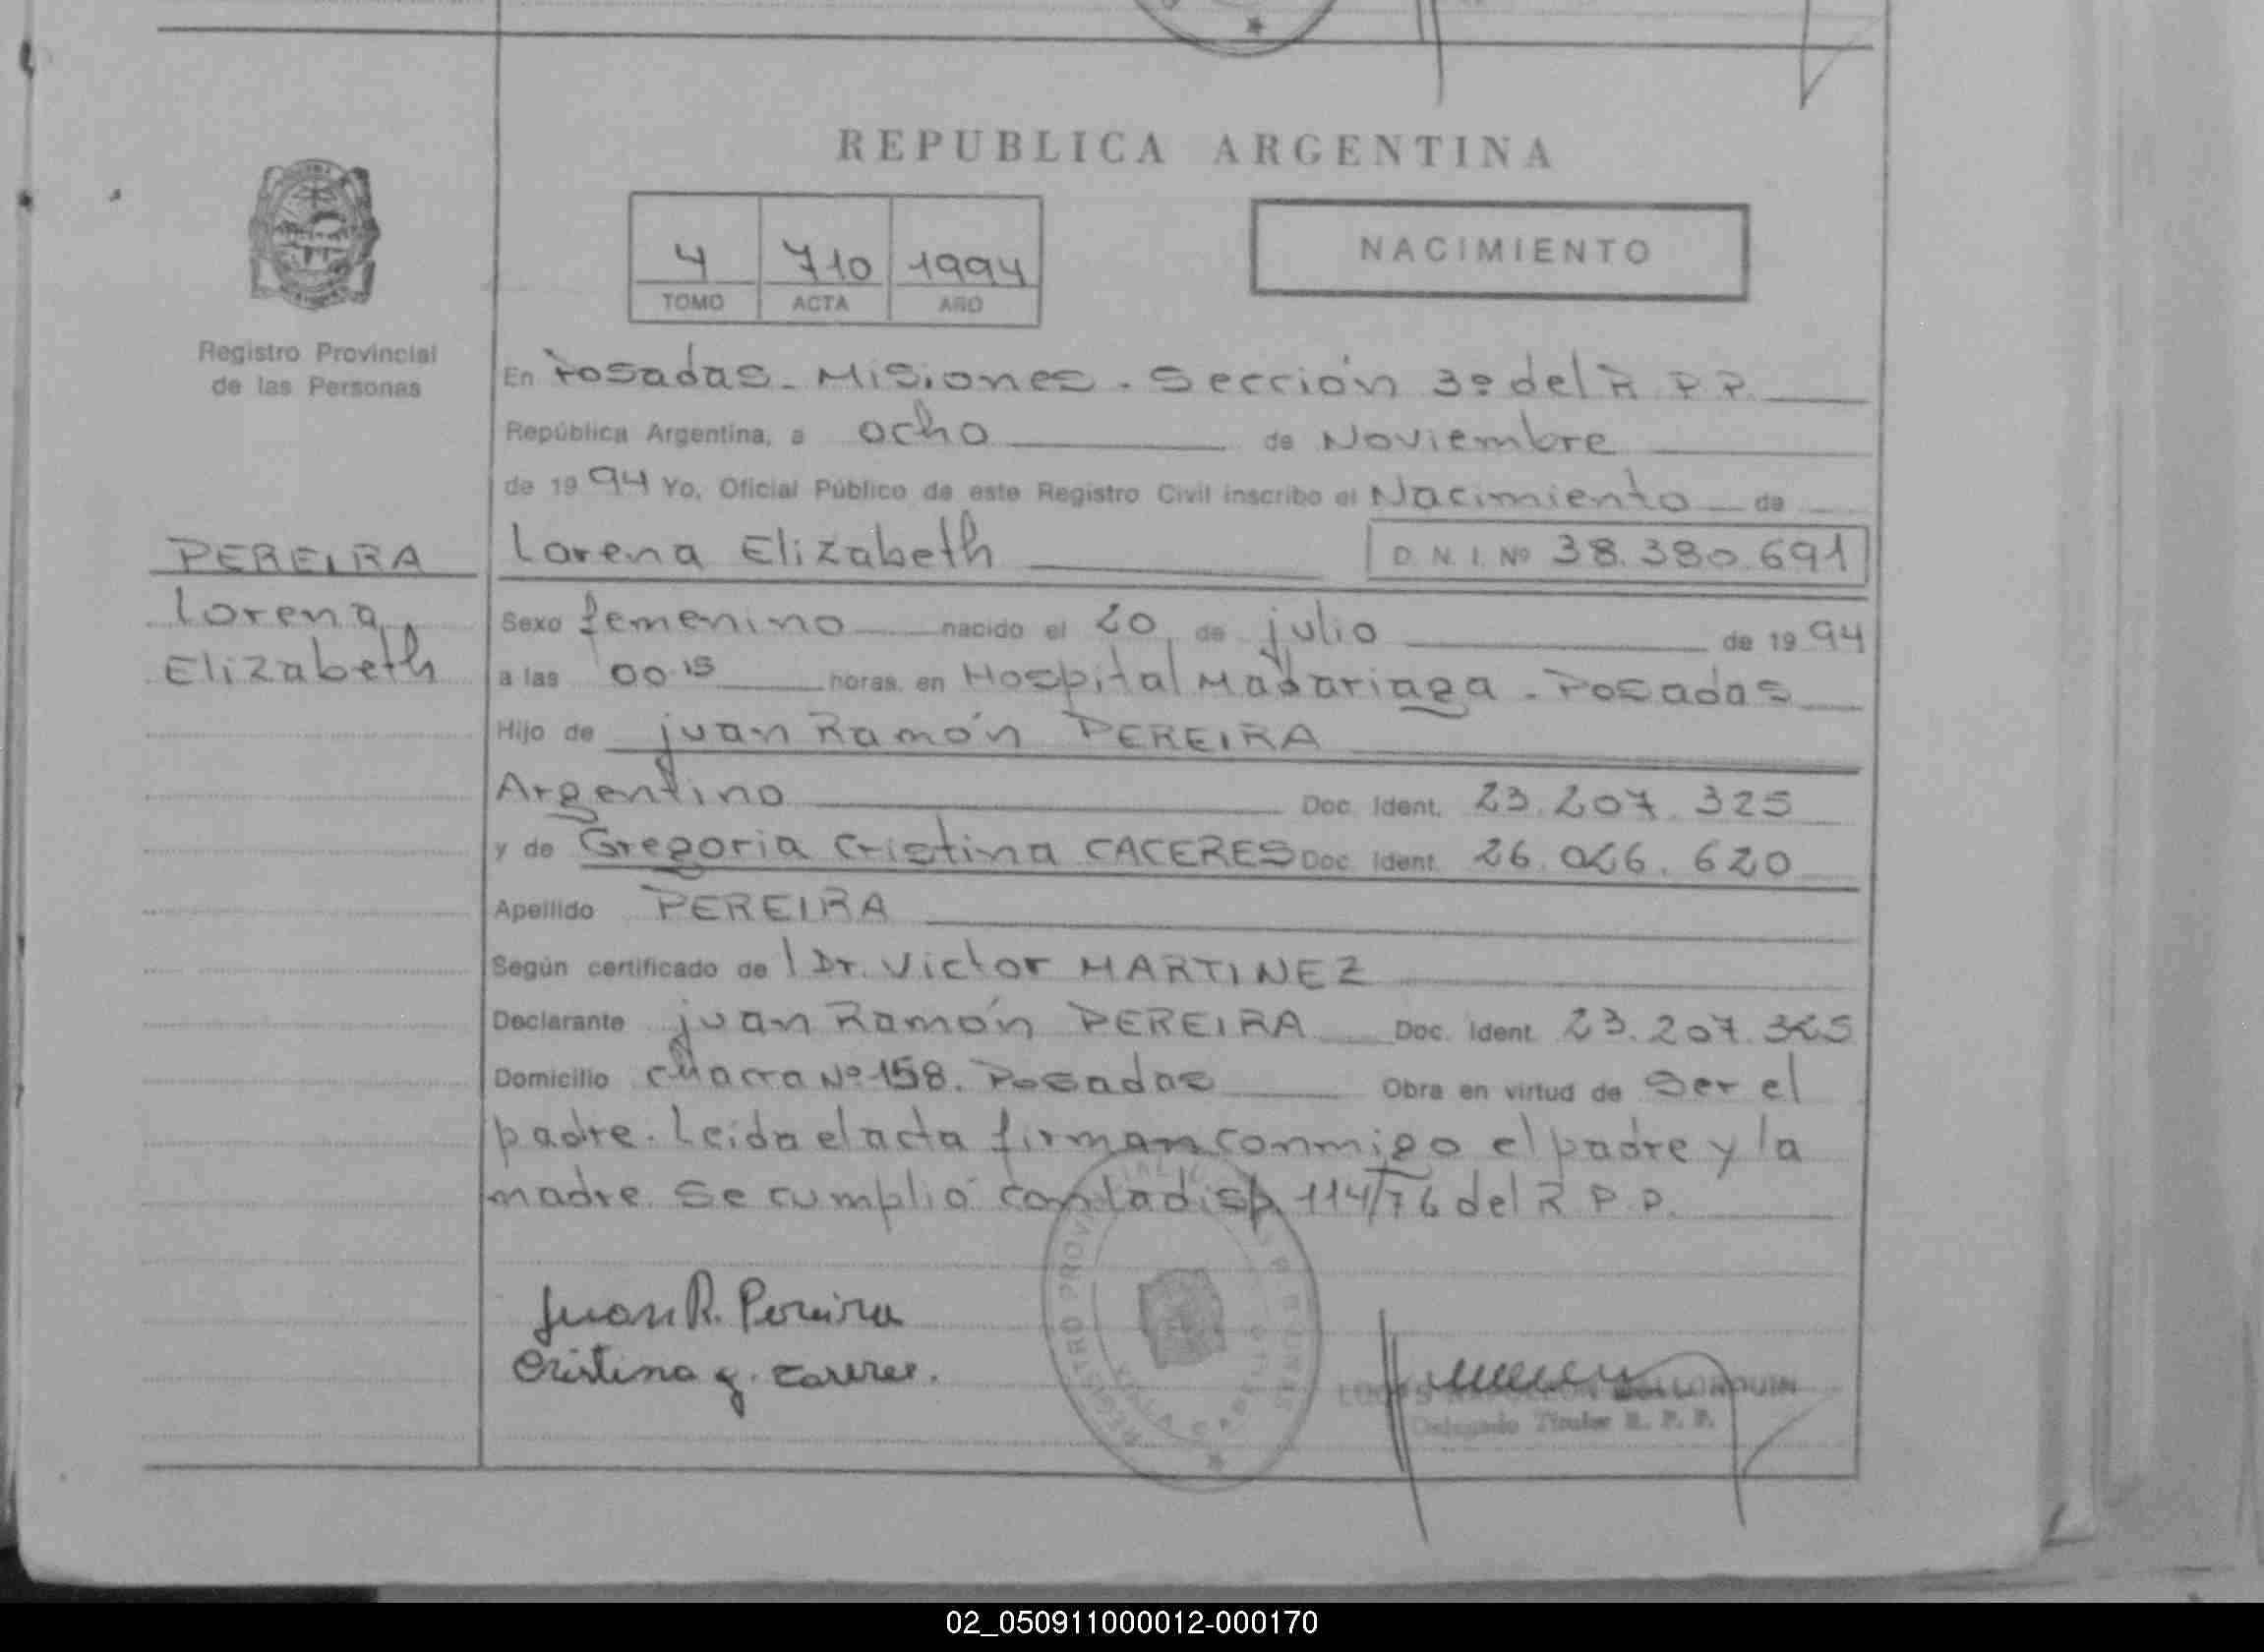 REPUBLICA ARGENTINA
4 710 1994
TOMO ACTA AÑO
NACIMIENTO
Registro Provincial
de las Personas
En Posadas - Misiones - Sección 3º del R. P. P.
República Argentina, a ocho de Noviembre
de 1994 Yo, Oficial Público de este Registro Civil inscribo el Nacimiento de
PEREIRA
Lorena
Elizabeth
Lorena Elizabeth D. N. I. Nº 38.380.691
Sexo femenino nacido el 20 de julio de 1994
a las 00.15 horas, en Hospital Madariaga - Posadas
Hijo de Juan Ramón PEREIRA
Argentino Doc. Ident. 23.207.325
y de Gregoria Cristina CACERES Doc. Ident. 26.066.620
Apellido PEREIRA
Según certificado de l Dr. Victor MARTINEZ
Declarante Juan Ramón PEREIRA Doc. Ident. 23.207.325
Domicilio chacra Nº 158. Posadas Obra en virtud de ser el
padre. Leida el acta firman conmigo el padre y la
madre. Se cumplió con la disp. 114/76 del R. P. P.
Juan R. Pereira
Cristina g. Caceres.
REGISTRO
Delegado Titular R. P. P.
02_050911000012-000170